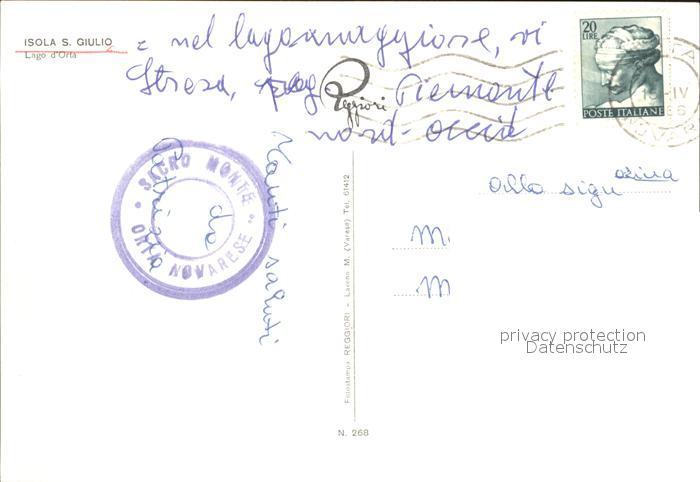 ISOLA S. GIULIO
Lago d'Orta
nel lagomaggiore, vi
Stresa, Piemonte
nord-occid
Reggiori
20
LIRE
POSTE ITALIANE
SACRO MONTE
ORTA NOVARESE
Tanti saluti
da
Patrizia
alla sign
orina
M.
M
Fotostampa REGGIORI - Laveno M. (Varese) Tel. 61412
N. 268
privacy protection
Datenschutz